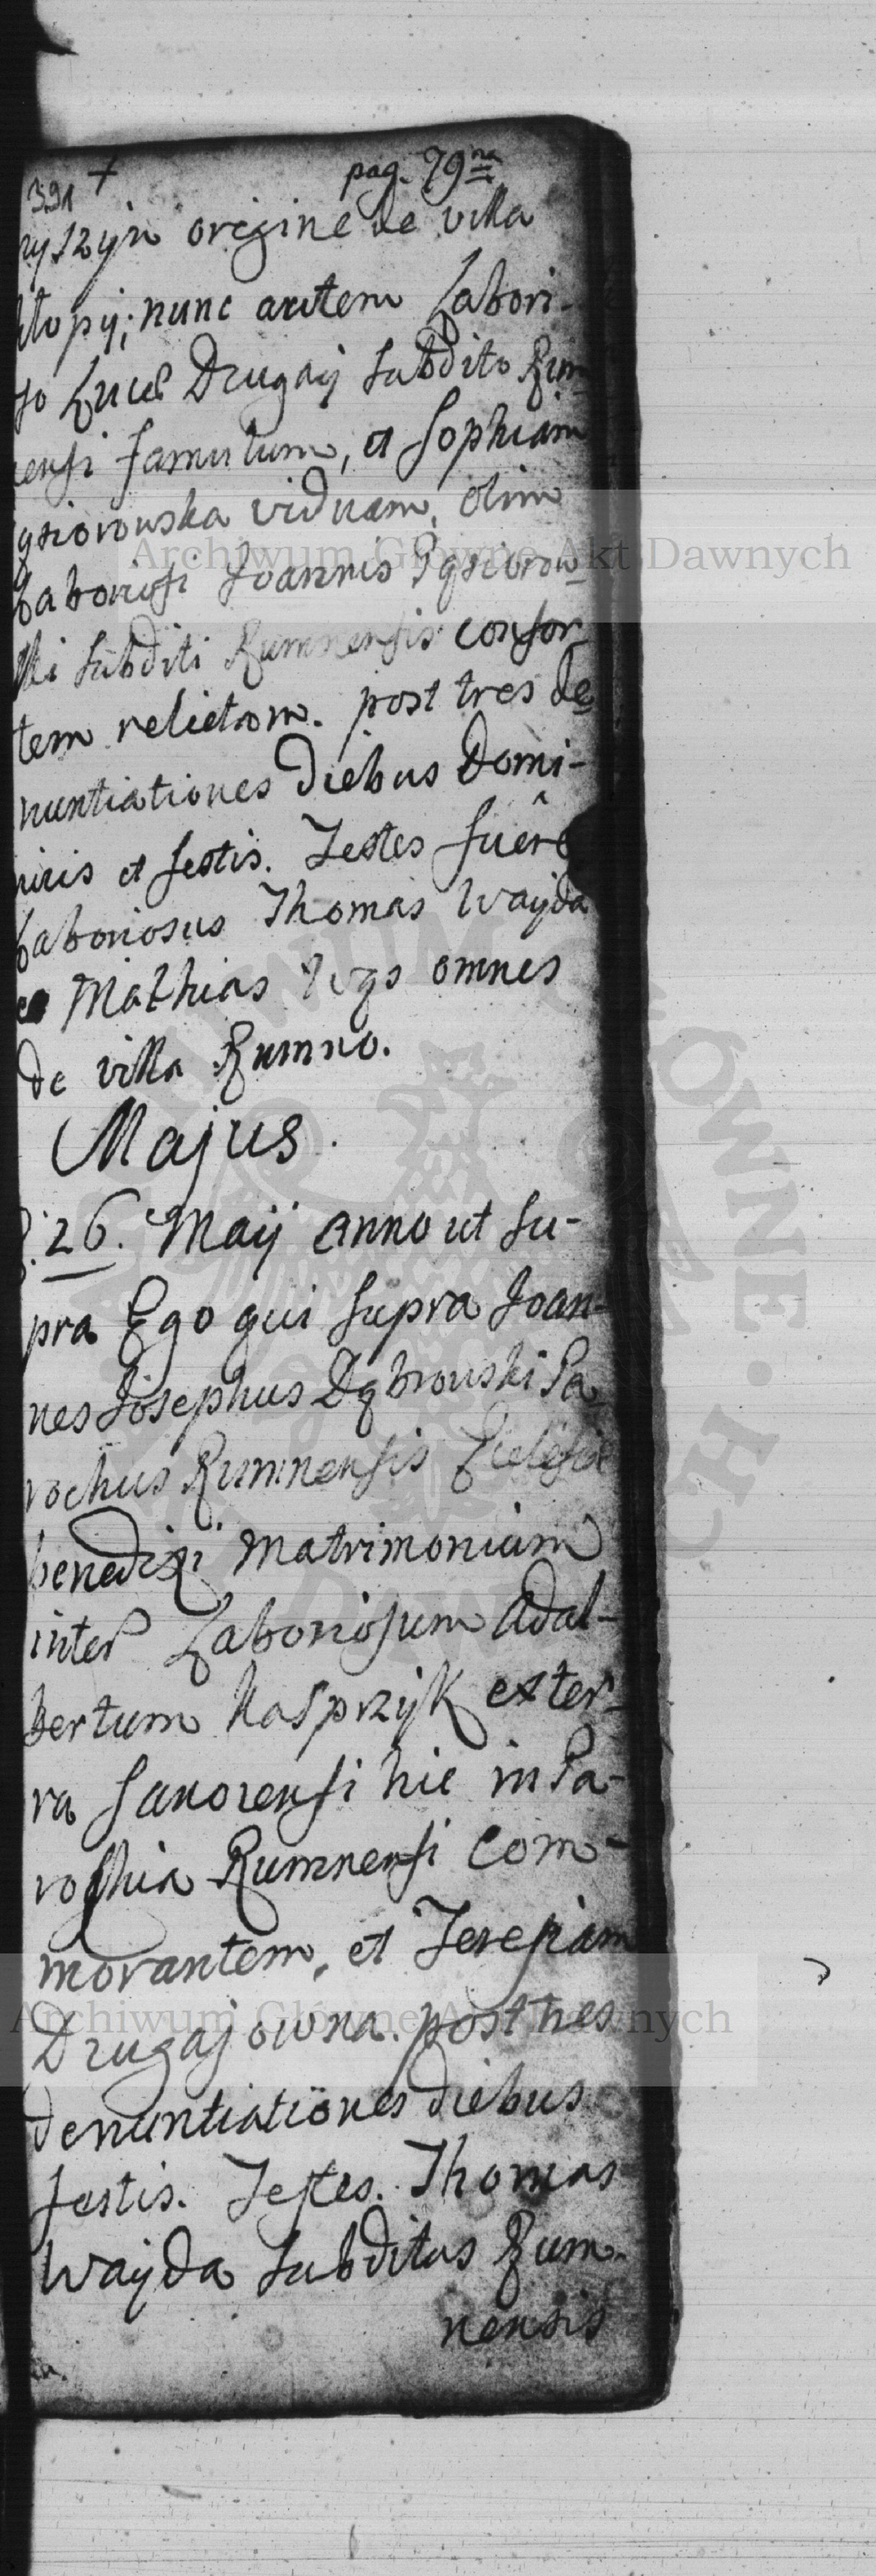 391 + pag. 79na
ryszyn origine de villa
Chłopij; nunc autem Labori-
so Lucæ Drugaij Subdito Rum-
nensi famulum, et Sophiam
Gąsiorowska viduam, olim
Laboriosi Joannis Gąsiorow-
ski Subditi Rumnensis consor-
tem relictam. post tres de-
nuntiationes diebus Domi-
nicis et festis. Testes fuêre
Laboriosus Thomas Wayda
et Mathias Wąs omnes
de villa Rumno.
Majus.
D. 26. Maij Anno ut Su-
pra Ego qui Supra Joan-
nes Josephus Dąbrowski Pa-
rochus Rumnensis Ecclesiæ
benedixi Matrimonium
inter Laboriosum Adal-
bertum Kasprzyk ex ter-
ra Sanocensi hic in Pa-
rochia Rumnensi com-
morantem, et Teresiam
Drugajowna. post tres
denuntiationes diebus
festis. Testes. Thomas
Wayda Subditus Rum-
nensis
Archiwum Główne Akt Dawnych
Archiwum Główne Akt Dawnych
ARCHIWUM GŁÓWNE AKT DAWNYCH